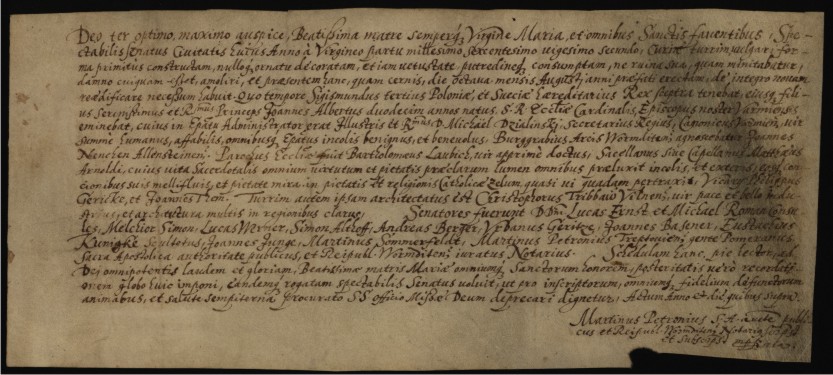 Deo ter optimo, maximo auspice, Beatissima matre semperq, Virgine Maria, et omnibus Sanctis faventibus, Spe-
ctabilis senatus Civitatis Anno à Virgineo partu millesimo sexcentesimo vigesimo secundo, turrim, vulgari for-
ma primitus constructam, nulloq, ornatu decoratam, et iam vetustate putredineq, consumptam, ne ruina sua, quam minitabatur,
damno cuiquam amoliri, et praesentem hanc, quam cernis, die octava mensis Augusti, anni praefati erectam, de integro novam
reaedificare necessum habuit. Quo tempore Sigismundus tertius Poloniae, et Sueciae haereditarius Rex sceptra tenebat, eiusq, fili-
us serenissimus et Rmus Princeps Joannes Albertus duodecim annos natus. S. R. Ecclae Cardinalis Episcopus noster Varmiensis
eminebat, cuius in Epatu Administrator erat Illustris et Rmus D. Michael Dzialinski, Secretarius Regius, Canonicus Varmien, vir
summe humanus, affabilis, omnibusq, Epatus incolis benignus, et benevolus. Burggrabius Arcis Wormditen, agnoscebatur Joannes
Nenchen Allensteinen. Parochus Ecclae fuit Bartholomaeus Laubich, vir apprime doctus, Sacellanus sive Capellanus Matthaeus
Arnoldi, cuius vita Sacerdotalis omnium virtutum et pietatis praeclarum lumen omnibus praeluxit incolis, et externis, qui con-
cionibus suis mellifluis, et pietate mira in pietatis et religionis Catholicae zelum quasi vi quadam pertraxit. Vicarii Philippus
Gericke, et Joannes Thon. Turrim autem ipsam architectatus est Christophorus Tribbaw Vilnen, vir pace et bello indu-
strius, et architectura multis in regionibus clarus. Senatores fuerunt DDni, Lucas Ernst et Michael Roman Consu-
les, Melchior Simon, Lucas Werner, Simon Althoff, Andreas Berger, Urbanus Geritz, Joannes Basener, Eustachius
Kunigke Scultetus, Joannes Junge, Martinus Sommerfeldt, Martinus Petronius Treptovien, gente Pomeranus
Sacra Apostolica authoritate publicus, et Reipubl. Wormditen, iuratus Notarius. Schedulam hanc, pie lector, ad
Dei omnipotentis laudem et gloriam, Beatissimae matris Mariae omniumq, Sanctorum honorem, posteritatis vero recordati-
onem globo huic imponi, eandemq, rogatam spectabilis Senatus voluit, ut pro inscriptorum, omnium, fidelium defunctorum
animabus, et salute sempiterna procurato SS officio Missae Deum deprecari dignetur, Actum Anno et die quibus supra.
Martinus Petronius S. A. publi-
cus et Reipubl. Wormditen, Notarius
et subscrips